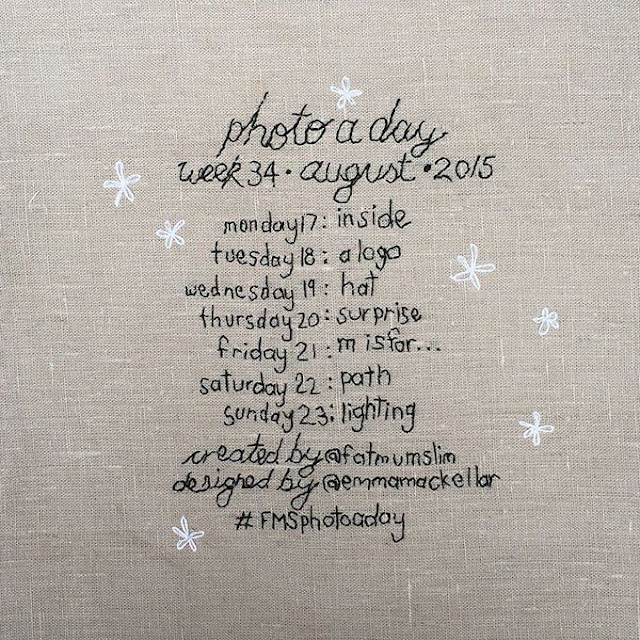 photo a day
week 34 • august • 2015
monday 17 : inside
tuesday 18 : a logo
wednesday 19 : hat
thursday 20 : surprise
friday 21 : m is for...
saturday 22 : path
sunday 23 : lighting
created by @fatmumslim
designed by @emmamackellar
#FMSphotoaday